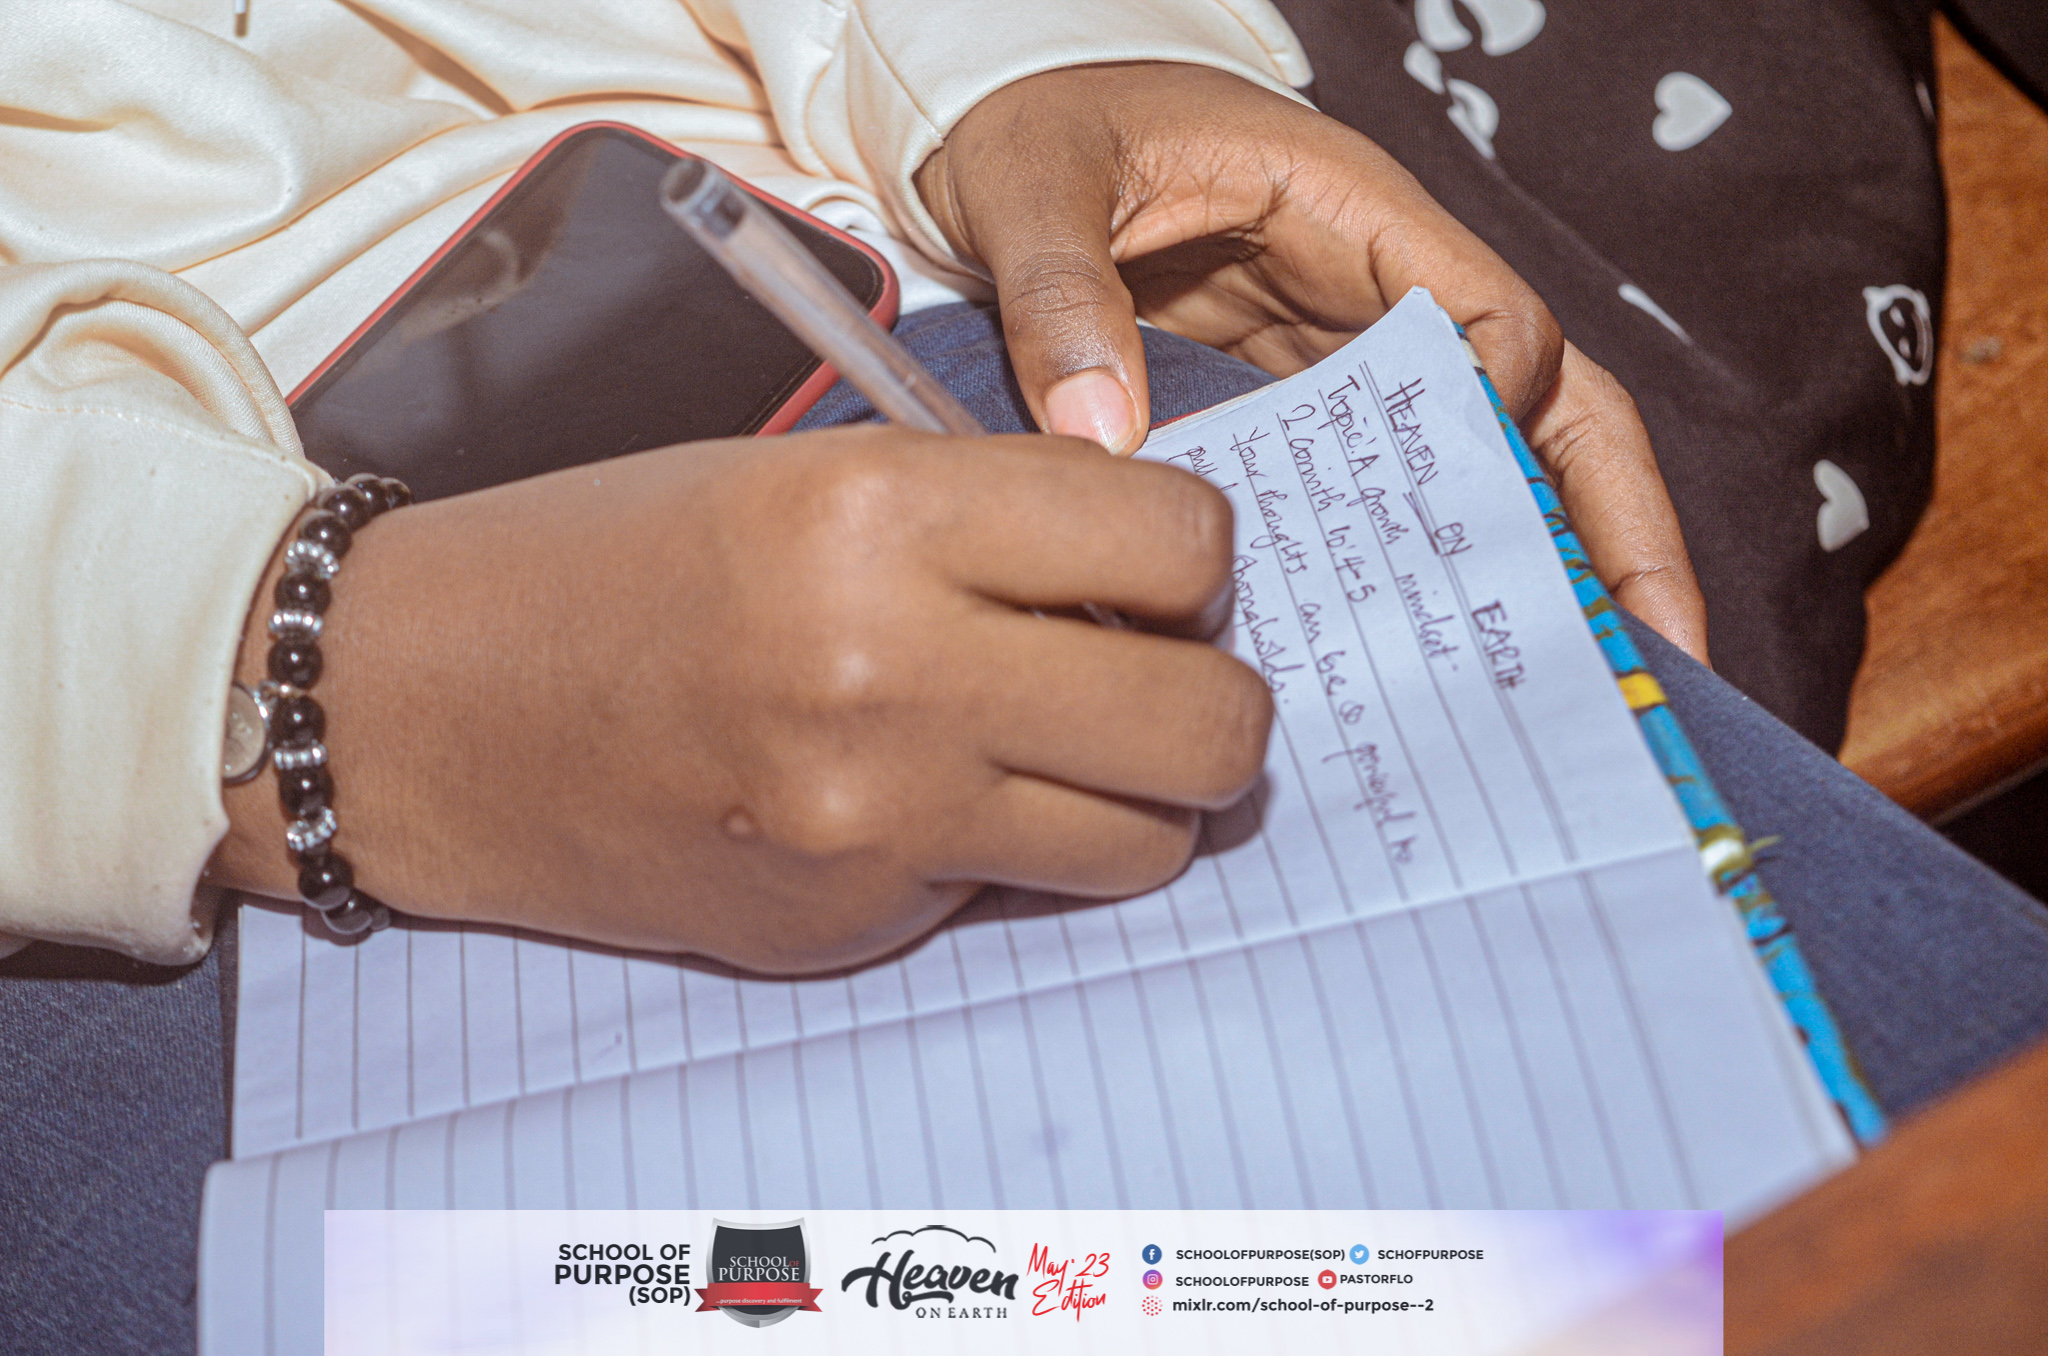 HEAVEN ON EARTH
Topic: A growth mindset
2 Corinth 10:4-5
Your thoughts can be a powerful to
pull strongholds.
SCHOOL OF
PURPOSE
(SOP)
SCHOOL OF
PURPOSE
...purpose discovery and fulfilment
Heaven
ON EARTH
May' 23
Edition
SCHOOLOFPURPOSE(SOP) SCHOFPURPOSE
SCHOOLOFPURPOSE PASTORFLO
mixlr.com/school-of-purpose--2